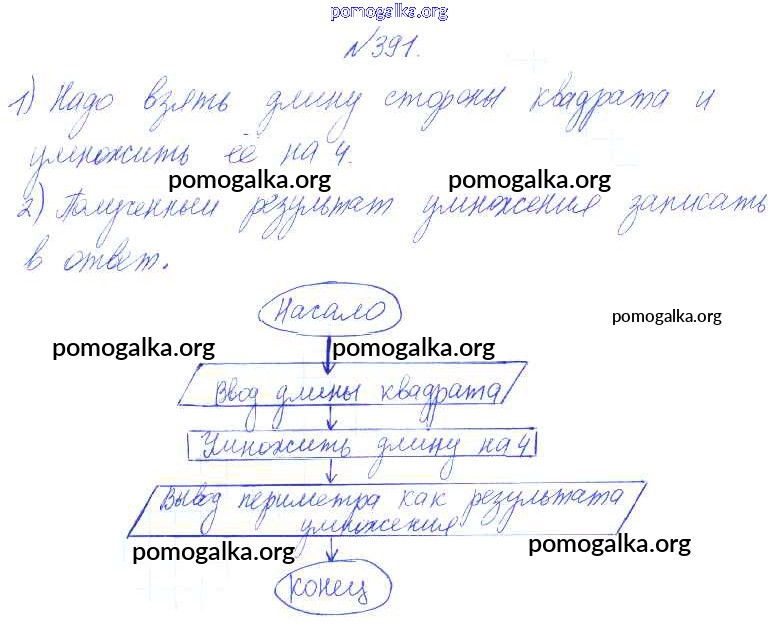 pomogalka.org
№391.
1) Надо взять длину стороны квадрата и
умножить её на 4.
pomogalka.org pomogalka.org
2) Полученный результат умножения записать
в ответ.
Начало
pomogalka.org
pomogalka.org pomogalka.org
Ввод длины квадрата
Умножить длину на 4
Вывод периметра как результата
умножения
pomogalka.org pomogalka.org
конец